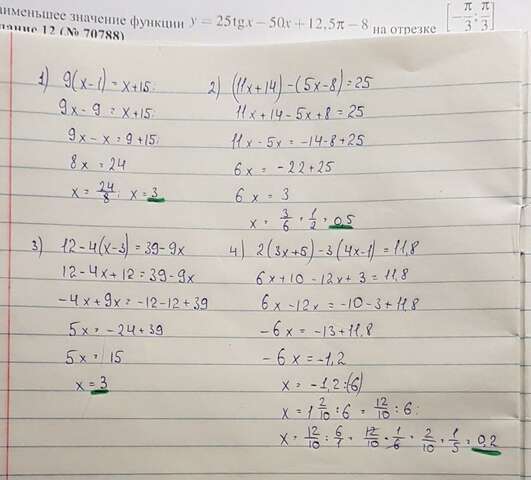 аименьшее значение функции y = 25tgx − 50x + 12,5π − 8 на отрезке [−π/3; π/3]
дание 12 (№ 70788)
1) 9(x-1) = x+15;
9x - 9 = x+15;
9x - x = 9+15;
8x = 24
x = 24/8; x = 3
2) (11x+14) - (5x-8) = 25
11x+14-5x+8 = 25
11x-5x = -14-8+25
6x = -22+25
6x = 3
x = 3/6 = 1/2 = 0,5
3) 12-4(x-3) = 39-9x
12-4x+12 = 39-9x
-4x+9x = -12-12+39
5x = -24+39
5x = 15
x = 3
4) 2(3x+5)-3(4x-1) = 11,8
6x+10-12x+3 = 11,8
6x-12x = -10-3+11,8
-6x = -13+11,8
-6x = -1,2
x = -1,2:(6)
x = 1 2/10 : 6 = 12/10 : 6;
x = 12/10 : 6/1 = 12/10 · 1/6 = 2/10 = 1/5 = 0,2